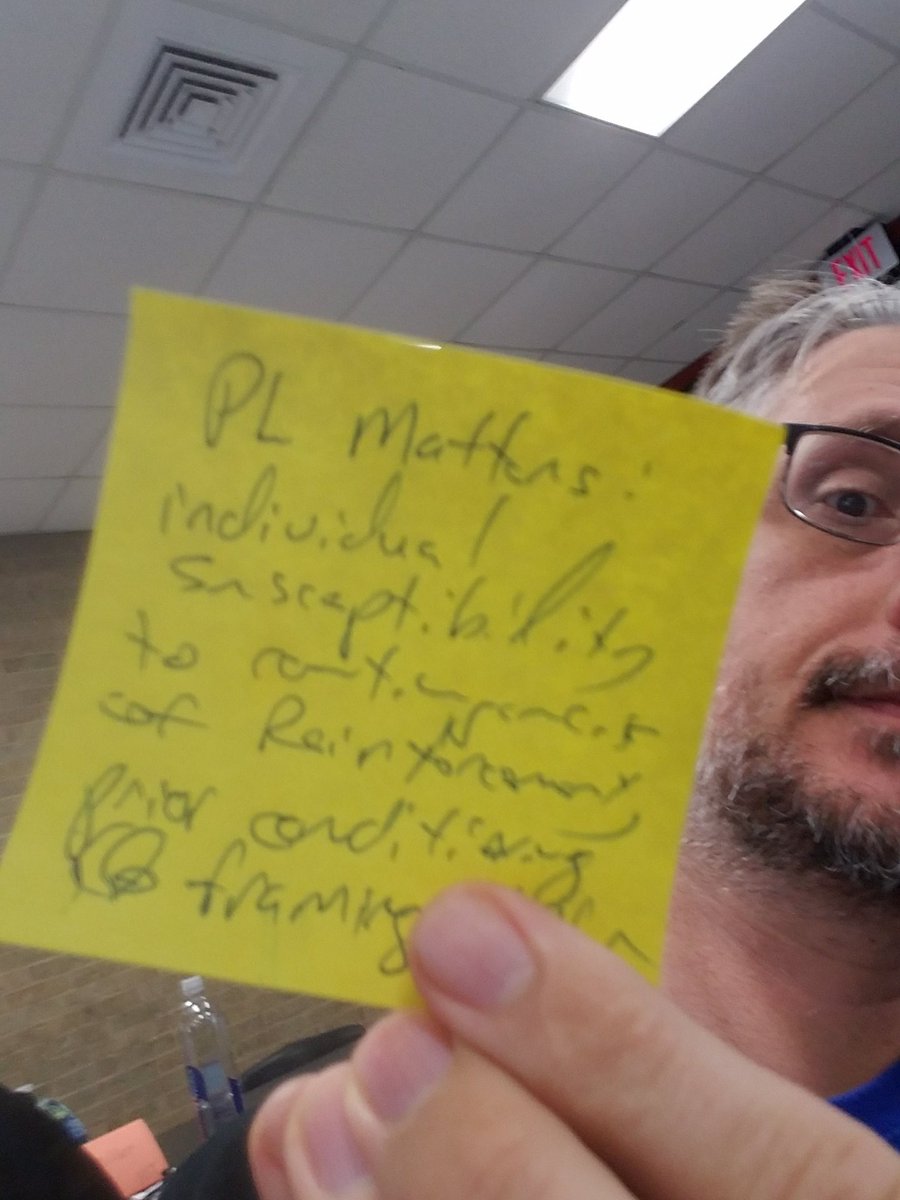 PL Matters:
individual
susceptibility
to contingencies
of Reinforcement,
prior conditioning
framing
EXIT